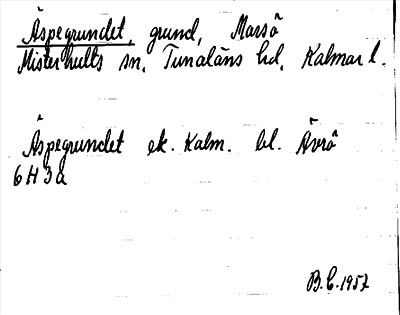 Äspegrundet, grund, Marsö
Misterhults sn. Tunaläns hd. Kalmar l.
Äspegrundet ek. Kalm. bl. Ävrö
6 H 3 a
B.C. 1957